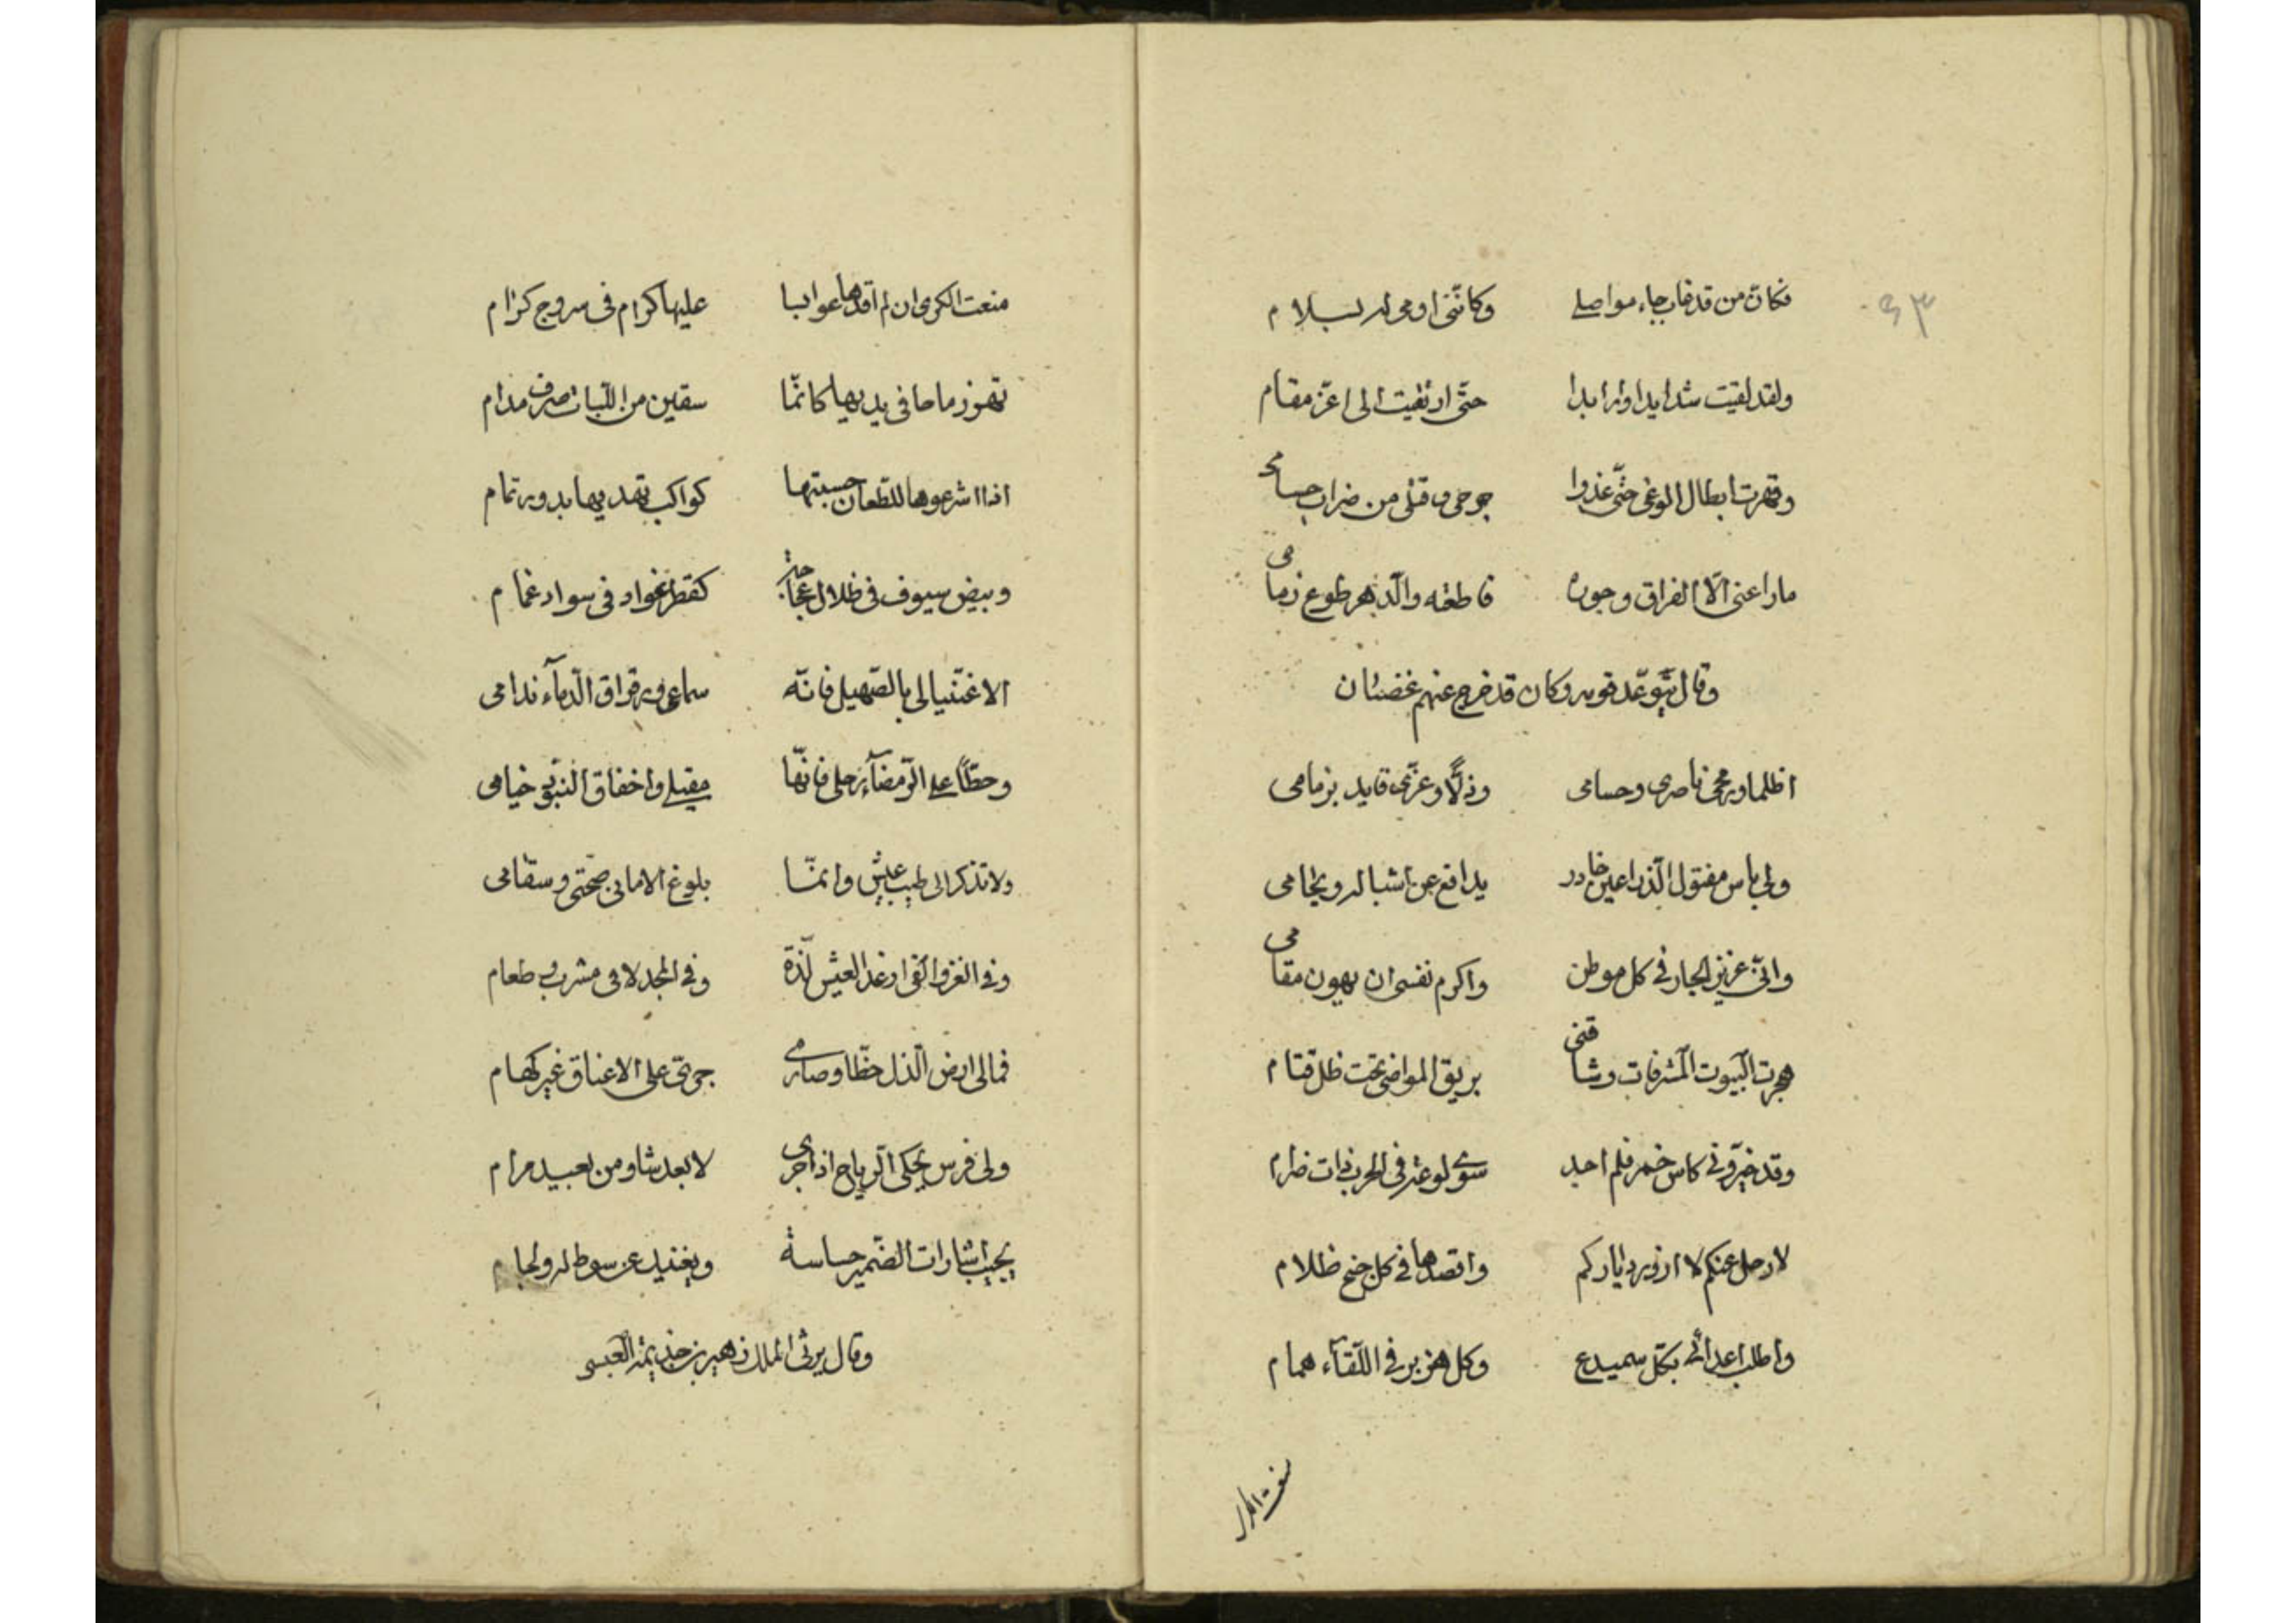 ٤٣
فكان من قد غاب جاء مواصلى وكانّنى اومى له بسلام
ولقد لقيت شدايدا واوابدا حتّى ارتقيت الى اعزّ مقام
وقهرت ابطال الوغى حتّى غدوا جرحى وقتلى من ضراب حسامى
ما راعنى الّا الفراق وجوره فاطعته والدّهر طوع زمامى
وقال يتوعّد قومه وكان قد خرج عنهم غضبان
اظلما ورمحى ناصرى وحسامى وذلّا وعزّى قايد بزمامى
ولى باس مفتول الذّراعين خادر يدافع عن اشباله ويحامى
وانّى عزيز الجار فى كل موطن واكرم نفسى ان يهون مقامى
هجرت البيوت المشرفات وشاقنى بريق المواضى تحت ظلّ قتام
وقد خيّرونى كاس خمر فلم اجد سوى لوعة فى الحرب ذات ضرام
لارحل عنكم لا ازور دياركم واقصدها فى كل جنح ظلام
واطلب اعدائى بكلّ سميدع وكل هزبر فى اللّقآء همام
منعت الكرى ان لم اقدها عوابسا عليها كرام فى سروج كرام
تهز رماحا فى يديها كانّما سقين من اللبّات صرف مدام
اذا اشرعوها للطّعان حسبتها كواكب تهديها بدور تمام
وبيض سيوف فى ظلال عجاجة كقطر غواد فى سواد غمام
الا غنّيا لى بالصّهيل فانّه سماعى ورقراق الدّمآء ندامى
وحطّا على الرّمضآء رحلى فانّها مقيلى واخفاق البنود خيامى
ولا تذكرا لى طيب عيش وانمّا بلوغ الامانى صحّتى وسقامى
وفى الغزو القى ارغد العيش لذّة وفى المجد لا فى مشرب وطعام
فمالى ارض الذل حظّا وصارمى جرىّ على الاعناق غير كهام
ولى فرس يحكى الرّياح اذا جرى لابعد شاو من بعيد مرام
يجيب اشارات الضّمير حساسة ويغنيك عن سوط له ولجام
وقال يرثى الملك زهير بن جذيمة العبسى